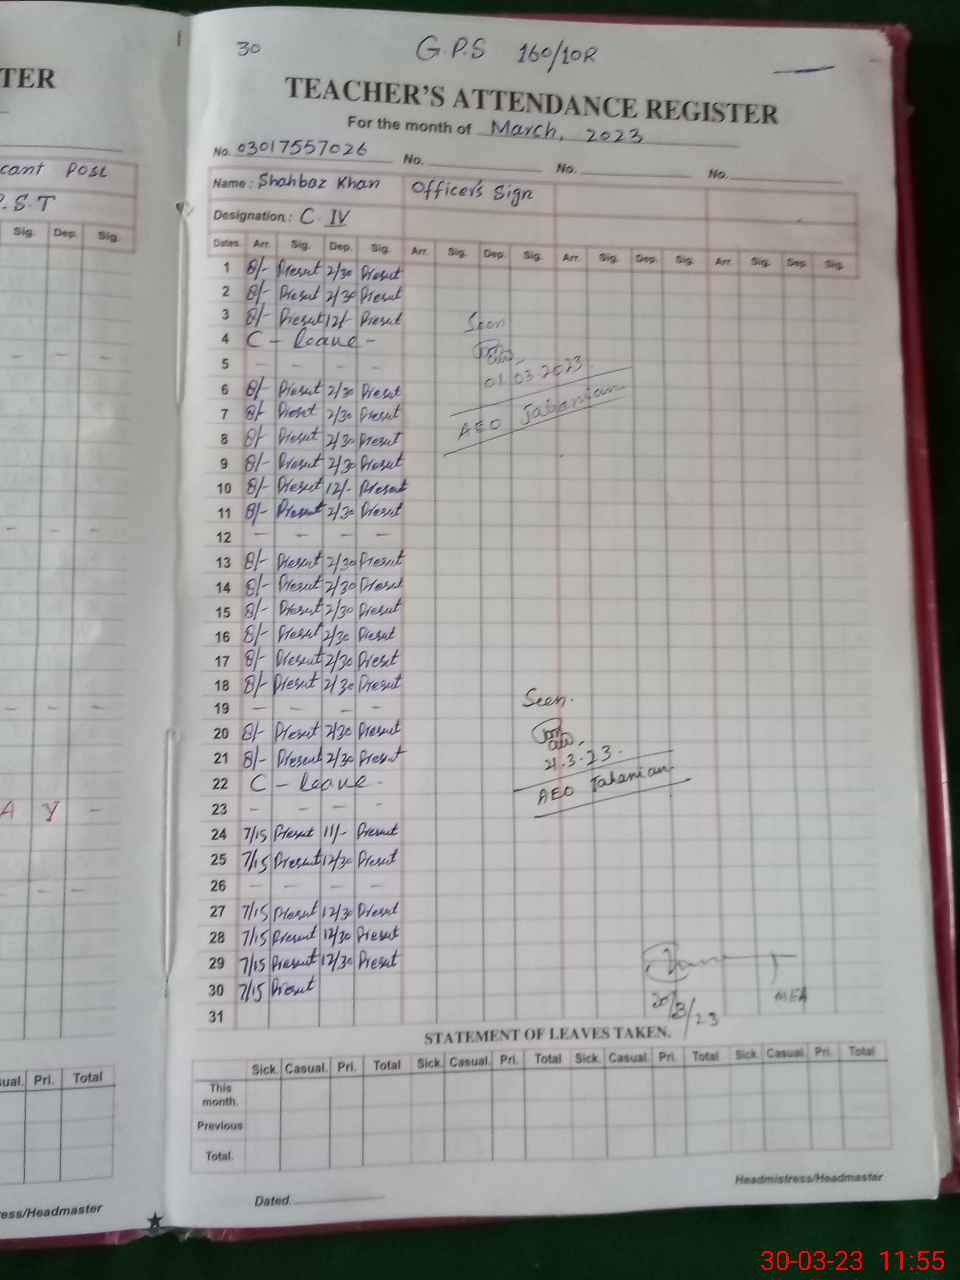 TER
cant Post
P.S.T
Sig. Dep. Sig.
A Y -
ual. Pri. Total
ess/Headmaster
30 G.P.S 160/10R
TEACHER'S ATTENDANCE REGISTER
For the month of March, 2023
No. 03017557026 No. No. No.
Name : Shahbaz Khan Officer's Sign
Designation : C IV
Dates. Arr. Sig. Dep. Sig. Arr. Sig. Dep. Sig. Arr. Sig. Dep. Sig. Arr. Sig. Dep. Sig.
1 8/- Present 2/30 Present
2 8/- Present 2/30 Present
3 8/- Present 12/- Present
4 C - Leave -
5 - - - -
6 8/- Present 2/30 Present
7 8/- Present 2/30 Present
8 8/- Present 2/30 Present
9 8/- Present 2/30 Present
10 8/- Present 12/- Present
11 8/- Present 2/30 Present
12 - - - -
13 8/- Present 2/30 Present
14 8/- Present 2/30 Present
15 8/- Present 2/30 Present
16 8/- Present 2/30 Present
17 8/- Present 2/30 Present
18 8/- Present 2/30 Present
19 - - - -
20 8/- Present 2/30 Present
21 8/- Present 2/30 Present
22 C - Leave -
23 - - - -
24 7/15 Present 11/- Present
25 7/15 Present 12/30 Present
26 - - - -
27 7/15 Present 12/30 Present
28 7/15 Present 12/30 Present
29 7/15 Present 12/30 Present
30 7/15 Present
31
Seen
01.03.2023
AEO Jahanian
Seen.
21.3.23.
AEO Jahanian
MEA
STATEMENT OF LEAVES TAKEN.
Sick. Casual. Pri. Total Sick. Casual. Pri. Total Sick. Casual. Pri. Total Sick. Casual. Pri. Total
This month.
Previous
Total.
Headmistress/Headmaster
Dated.
30-03-23 11:55